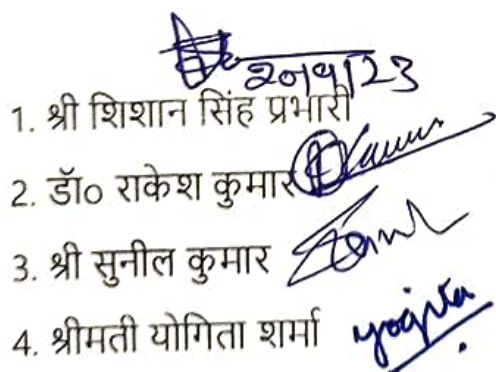 20/9/23
1. श्री शिशान सिंह प्रभारी
2. डॉ० राकेश कुमार
3. श्री सुनील कुमार
4. श्रीमती योगिता शर्मा yogita